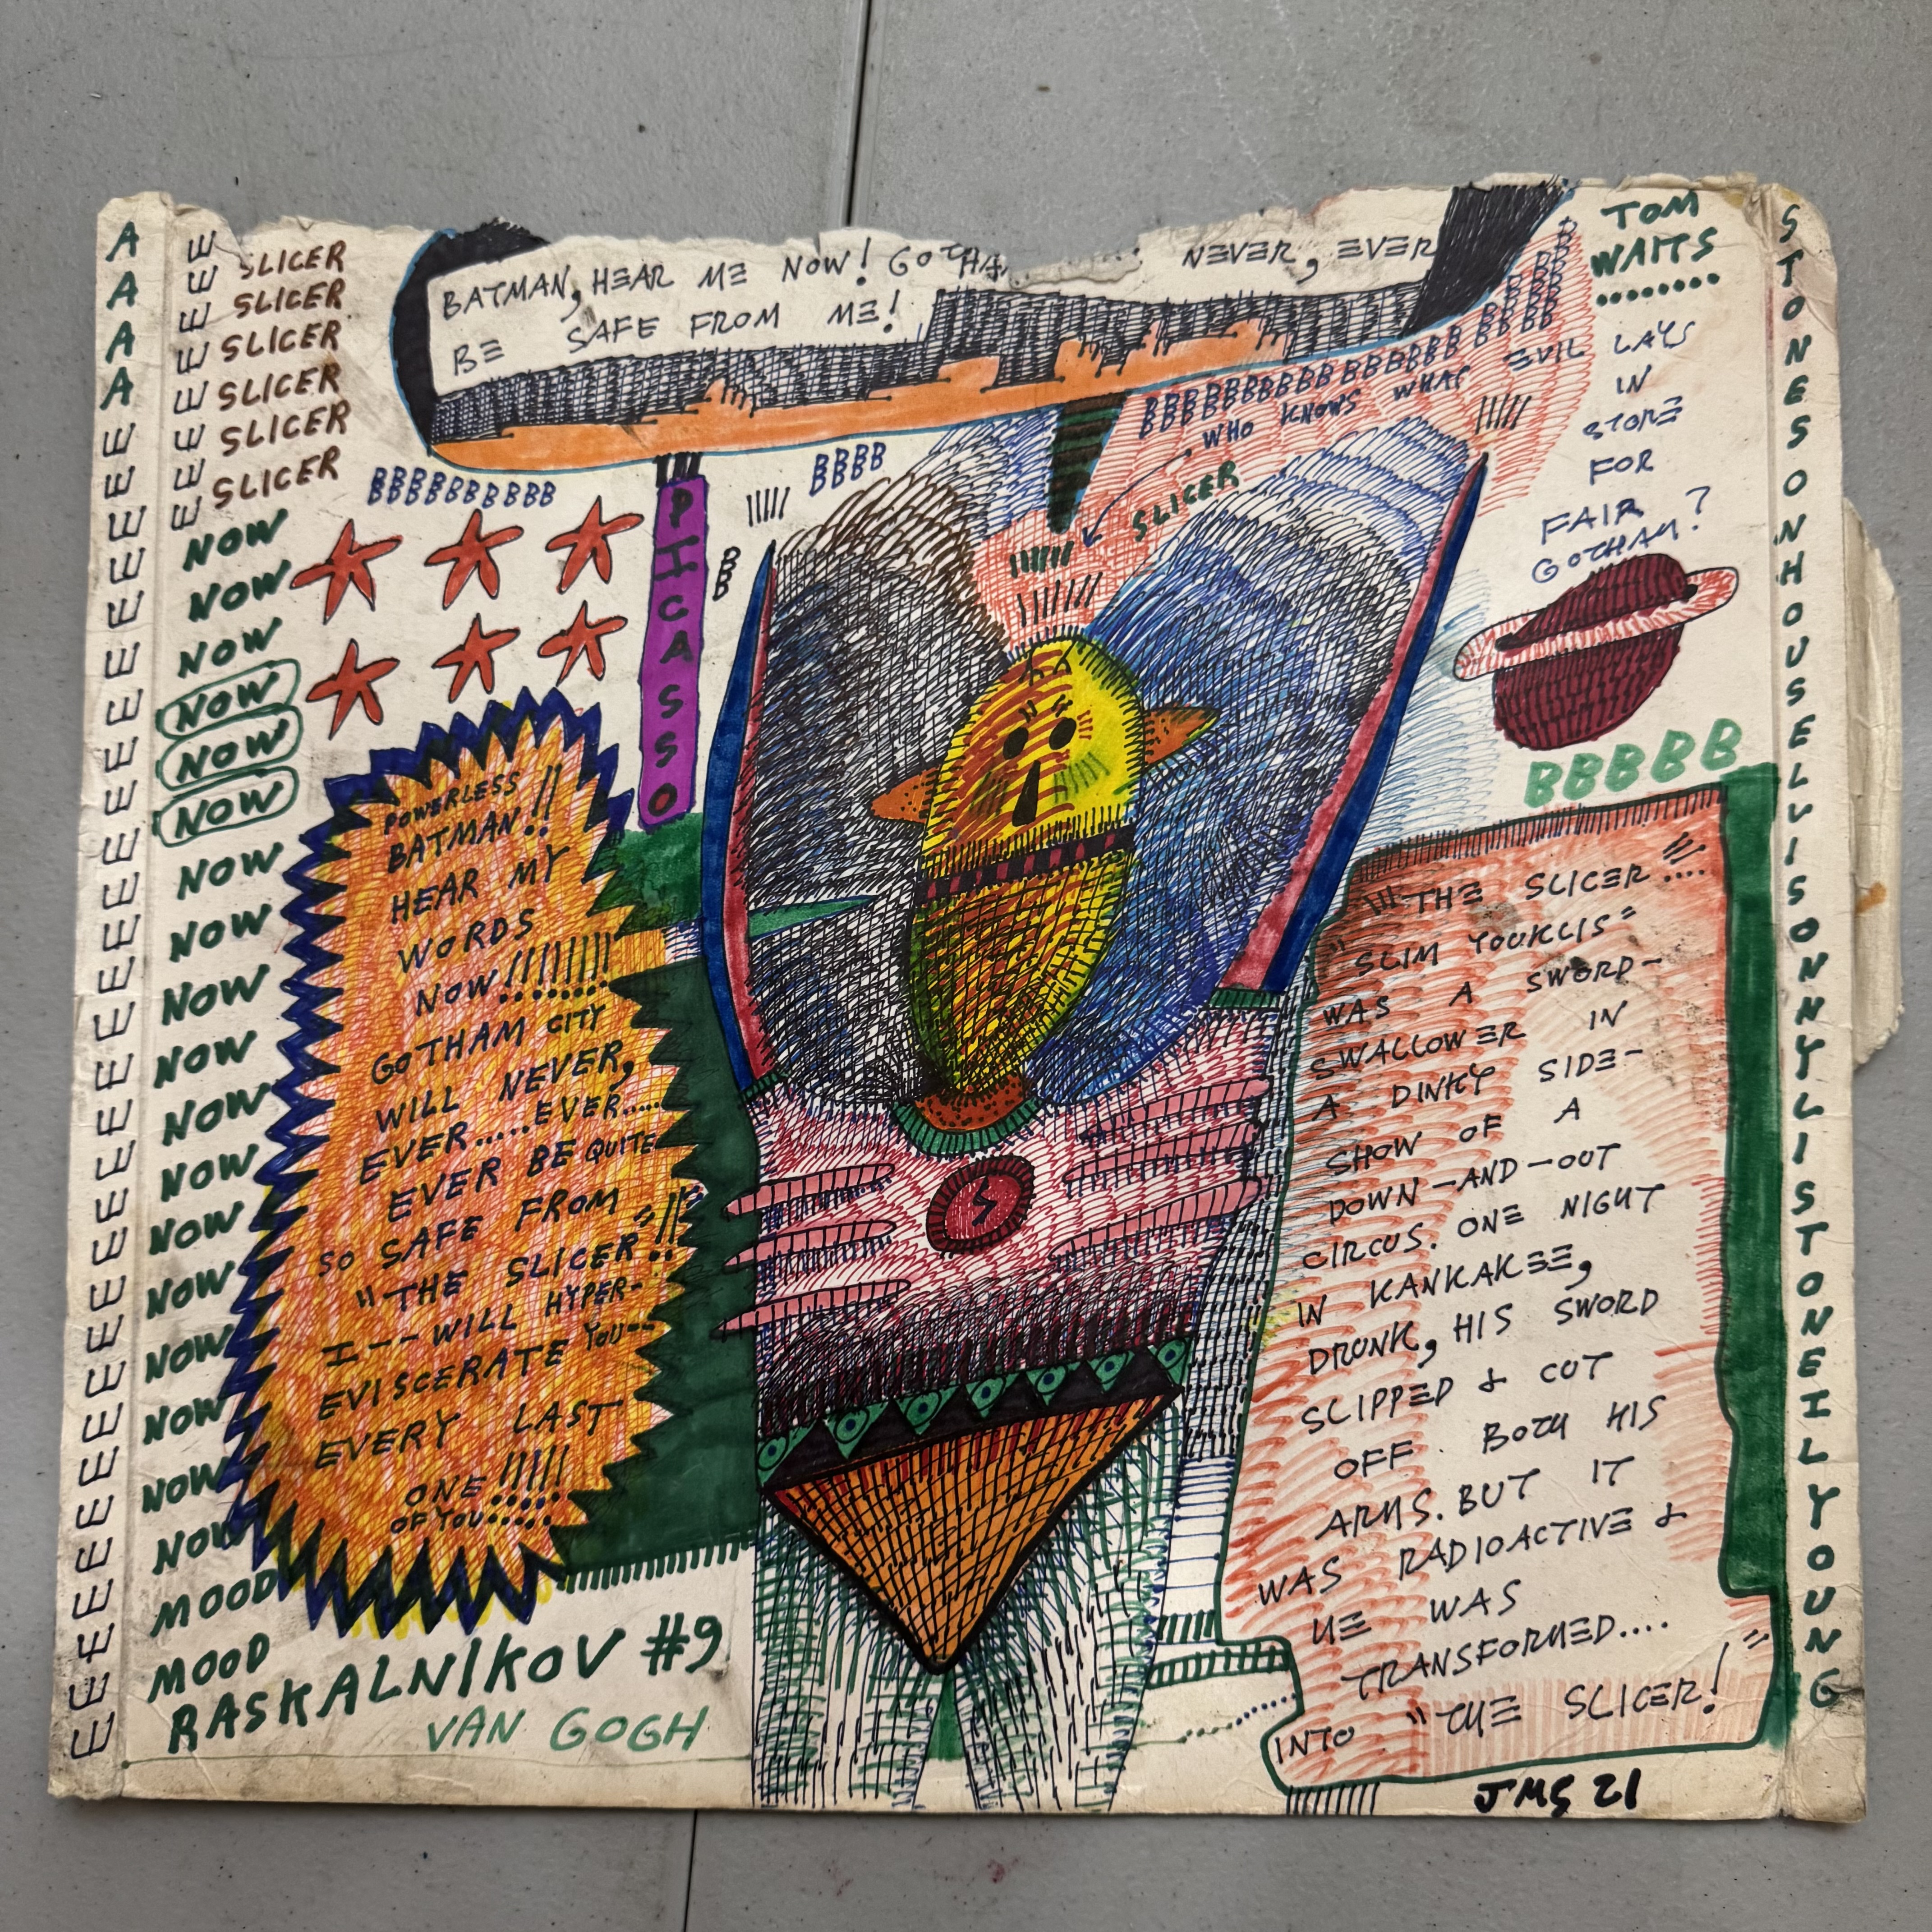 A
A
A
A
E
E
E
E
E
E
E
E
E
E
E
E
E
E
E
E
E
E
E
E
E
E
E
E
E
E
E
E
E
E
E
E
E
E
E
E
SLICER
SLICER
SLICER
SLICER
SLICER
SLICER
NOW
NOW
NOW
NOW
NOW
NOW
NOW
NOW
NOW
NOW
NOW
NOW
NOW
NOW
NOW
NOW
NOW
NOW
MOOD
MOOD
RASKALNIKOV #9
VAN GOGH
BATMAN, HEAR ME NOW! GOTHA NEVER, EVER
BE SAFE FROM ME!
BBBBBBBBBB
BBBB
BB
PICASSO
POWERLESS
BATMAN!!
HEAR MY
WORDS
NOW!!!!!!!!
GOTHAM CITY
WILL NEVER,
EVER.....EVER.....
EVER BE QUITE
SO SAFE FROM
"THE SLICER"!!
I--WILL HYPER-
EVISCERATE YOU--
EVERY LAST
ONE!!!!!
OF YOU.....
BBBBBBBBBBBBBBB
WHO KNOWS WHAT EVIL LAYS
IN
STORE
FOR
FAIR
GOTHAM?
SLICER
S
TOM
WAITS
........
BBBBB
"THE SLICER"....
"SLIM YOUKLIS"
WAS A SWORD-
SWALLOWER IN
A DINKY SIDE-
SHOW OF A
DOWN-AND-OUT
CIRCUS. ONE NIGHT
IN KANKAKEE,
DRUNK, HIS SWORD
SLIPPED & CUT
OFF BOTH HIS
ARMS. BUT IT
WAS RADIOACTIVE &
HE WAS
TRANSFORMED....
INTO "THE SLICER!"
JMS 21
STONESONHOUSELVISONNYLISTONEILYOUNG